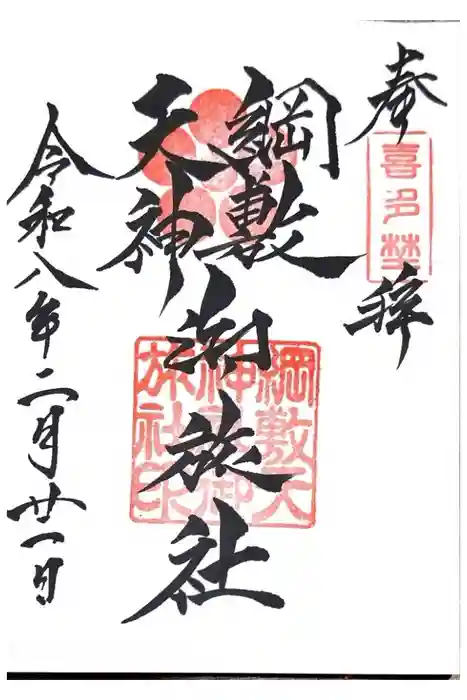 奉拝
喜多埜
綱敷
天神
御旅社
綱敷天
神
御
旅社印
令和八年二月廿一日